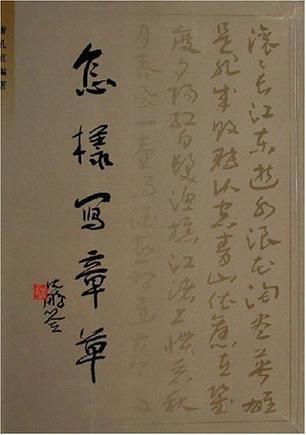 滚滚长江东逝水浪花淘尽英雄
是非成败转头空青山依旧在几
度夕阳红白发渔樵江渚上惯看秋
月春风一壶浊酒喜相逢
怎樣写章草
沈鹏签
孔宾编著